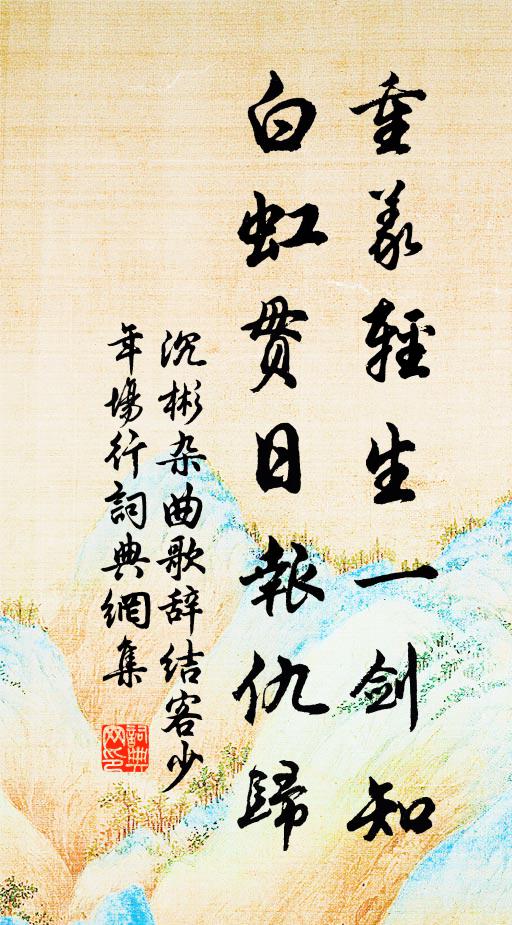 重義輕生一劍知
白虹貫日報仇歸
沉彬杂曲歌辞结客少
年場行詞典網集
詞典
网印